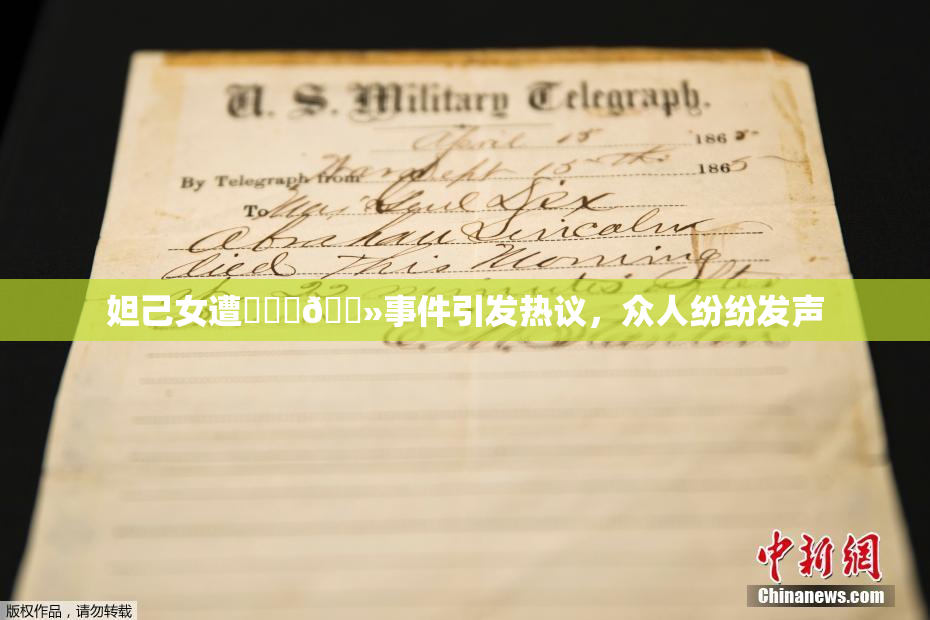 U. S. Military Telegraph.
April 15 1865
By Telegraph from War Dept 15th 1865
To Maj Genl Dix
Abraham Lincoln
died This Morning
at 22 minutes after
妲己女遭ð»事件引发热议，众人纷纷发声
E. M. Stanton
中新网
Chinanews.com
版权作品，请勿转载